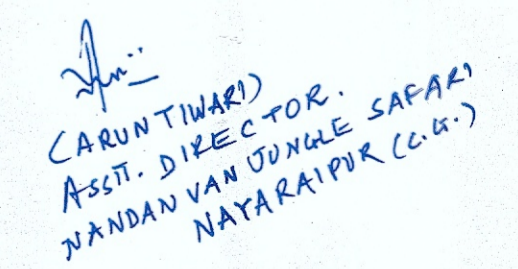 (ARUN TIWARI)
ASSTT. DIRECTOR.
NANDAN VAN JUNGLE SAFARI
NAYARAIPUR (C.G.)